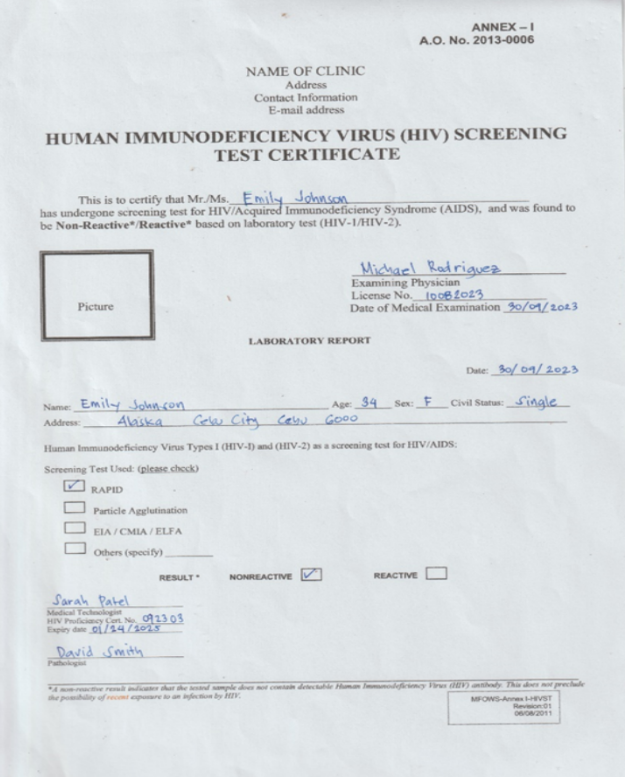 ANNEX – I
A.O. No. 2013-0006
NAME OF CLINIC
Address
Contact Information
E-mail address
HUMAN IMMUNODEFICIENCY VIRUS (HIV) SCREENING
TEST CERTIFICATE
This is to certify that Mr./Ms. Emily Johnson
has undergone screening test for HIV/Acquired Immunodeficiency Syndrome (AIDS), and was found to
be Non-Reactive*/Reactive* based on laboratory test (HIV-1/HIV-2).
Picture
Michael Rodriguez
Examining Physician
License No. 10082023
Date of Medical Examination 30/09/2023
LABORATORY REPORT
Date: 30/09/2023
Name: Emily Johnson Age: 34 Sex: F Civil Status: Single
Address: Alaska Cebu City Cebu 6000
Human Immunodeficiency Virus Types I (HIV-I) and (HIV-2) as a screening test for HIV/AIDS:
Screening Test Used: (please check)
RAPID
Particle Agglutination
EIA / CMIA / ELFA
Others (specify)
RESULT * NONREACTIVE REACTIVE
Sarah Patel
Medical Technologist
HIV Proficiency Cert. No. 092303
Expiry date 01/24/2025
David Smith
Pathologist
*A non-reactive result indicates that the tested sample does not contain detectable Human Immunodeficiency Virus (HIV) antibody. This does not preclude
the possibility of recent exposure to an infection by HIV.
MFOWS-Annex I-HIVST
Revision:01
06/08/2011